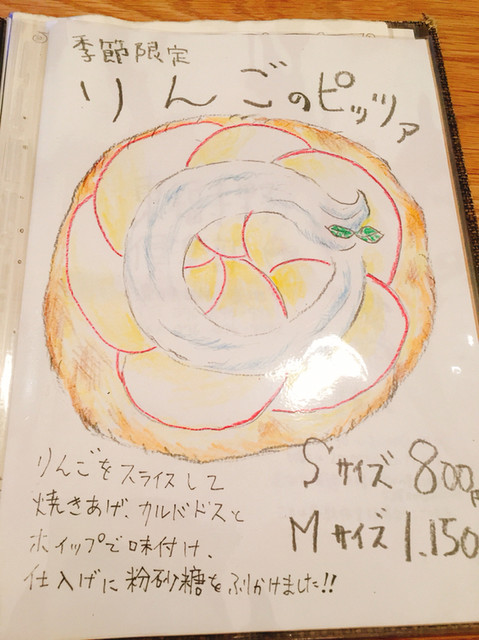 季節限定
りんごのピッツァ
りんごをスライスして
焼きあげ、カルバドスと
ホイップで味付け、
仕上げに粉砂糖をふりかけました!!
Sサイズ 800
Mサイズ 1.150